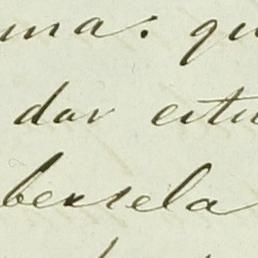 una: qu
dar estu
bersela